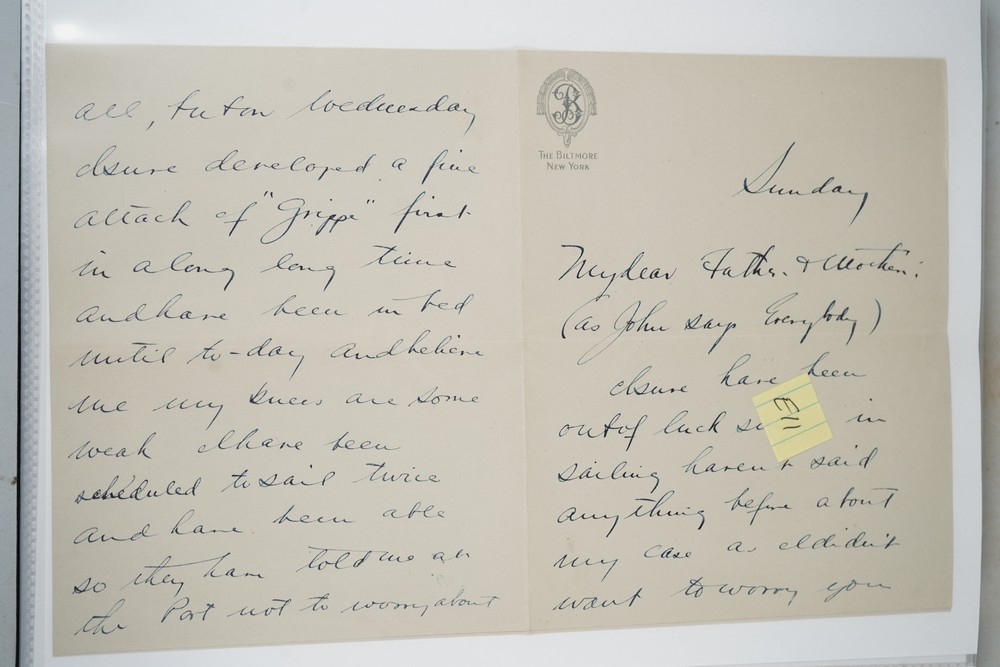 THE BILTMORE
NEW YORK
Sunday
My dear Father & Mother:
(as John says Everybody)
I sure have been
out of luck in
E11
sailing haven't said
anything before about
my case as I didn't
want to worry you
all, but on Wednesday
I sure developed a fine
attack of "Grippe" first
in a long long time
and have been in bed
until to-day and believe
me my knees are some
weak I have been
scheduled to sail twice
and have been able
so they have told me at
the Port not to worry about